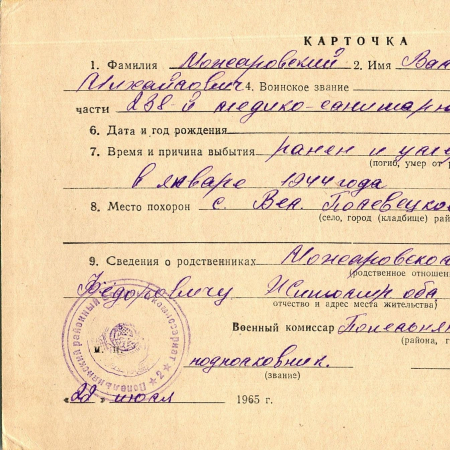 КАРТОЧКА
1. Фамилия Можаровский 2. Имя Вас
Михайлович 4. Воинское звание
части 238-й медико-санитарн
6. Дата и год рождения
7. Время и причина выбытия ранен и уме
(погиб, умер от р
в январе 1944 года
8. Место похорон с. Вел. Половецкое
(село, город (кладбище) рай
9. Сведения о родственниках Можаровско
(родственное отношен
Федоровичу Житомир обл
отчество и адрес места жительства)
Военный комиссар Попельня
(района, г
М.
подполковник.
(звание)
"22" июля 1965 г.